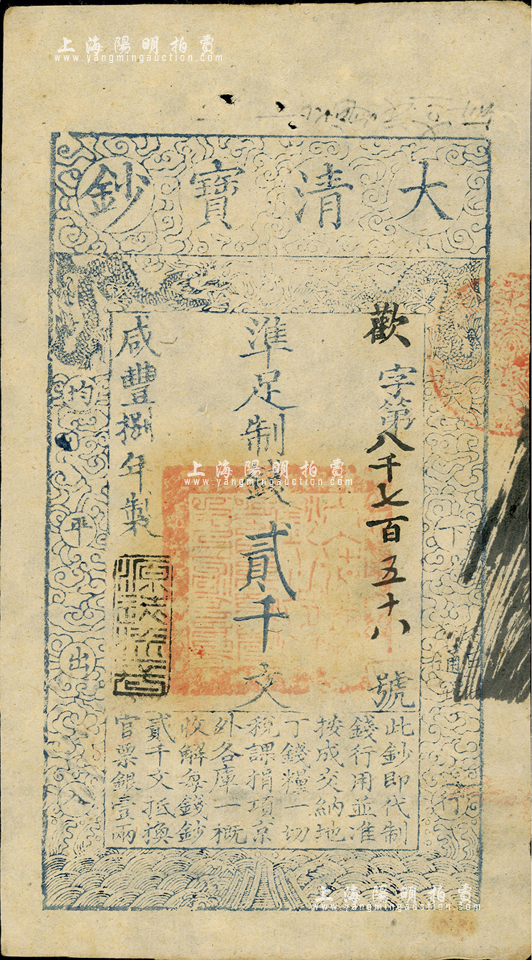 上海陽明拍賣
www.yangmingauction.com
大清寶鈔
歡字第八千七百五十八號
準足制錢貳千文
咸豐捌年製
天下通行
均平出入
此鈔即代制
錢行用並准
按成交納地
丁錢糧一切
稅課捐項京
外各庫一概
收解每錢鈔
貳千文抵換
官票銀壹兩
上海陽明拍賣
www.yangmingauction.com
上海陽明拍賣
www.yangmingauction.com